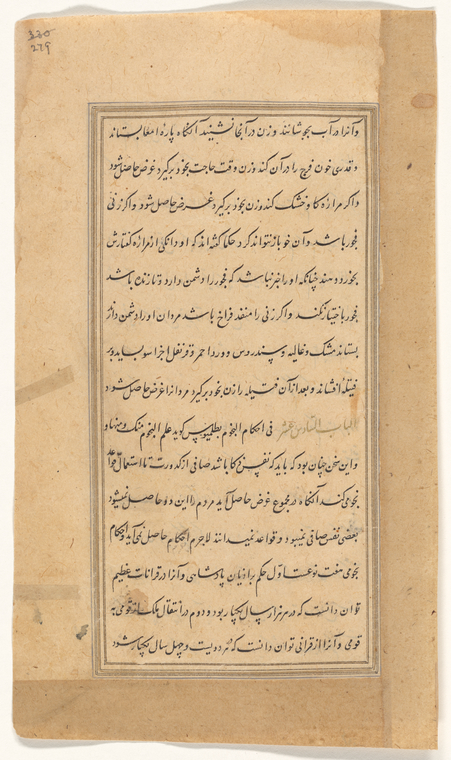 330
279
و آنرا در آب بجوشانند و زن در آنجا نشیند آنکاه پاره امعا بستاند
و قدری خون فرج را در آن کند و زن وقت حاجت بخود برکیرد غرض حاصل شود
و اکر مرارۀ کاو خشک کند و زن بخود برکیرد غرض حاصل شود و اکر زنی
فجور باشد و آن خو باز نتواند کرد حکما کفته اند که او دانکی از مرارۀ کفتارش
بخورد دهند چنانکه او را خبر نباشد که فجور را دشمن دارد و تا زنده باشد
فجور باختیار نکند و اکر زنی را منفذ فراخ باشد مردان او را دشمن دارند
بستاند مشک و غالیه و سندروس و ورد احمر و قرنفل اجزا سوا بساید و بر
فتیله افشاند و بعد از آن فتیله را زن بخود برکیرد مرد از اغرض حاصل شود
الباب السادس عشر در احکام النجوم بطلیموس کوید علم النجوم منک و منها و
و این سخن چنان بود که باید که نفس زکا باشد صافی از کدورت تا استعمال قواعد
نجومی کند آنکاه در مجموع غرض حاصل آید مردم را این دو حاصل نمیشود
بعضی نفس صافی نمیبود و قواعد نمیدانند لاجرم احکام حاصل نمی آید و احکام
نجومی هفت نوعست اول حکم بر ادیان پادشاهی و آنرا در قرانات عظیم
توان دانست که در هر هزار سال یکبار بود و دوم در انتقال ملک از قومی به
قومی و آنرا از قرانی توان دانست که در دویست و چهل سال یکبار شود